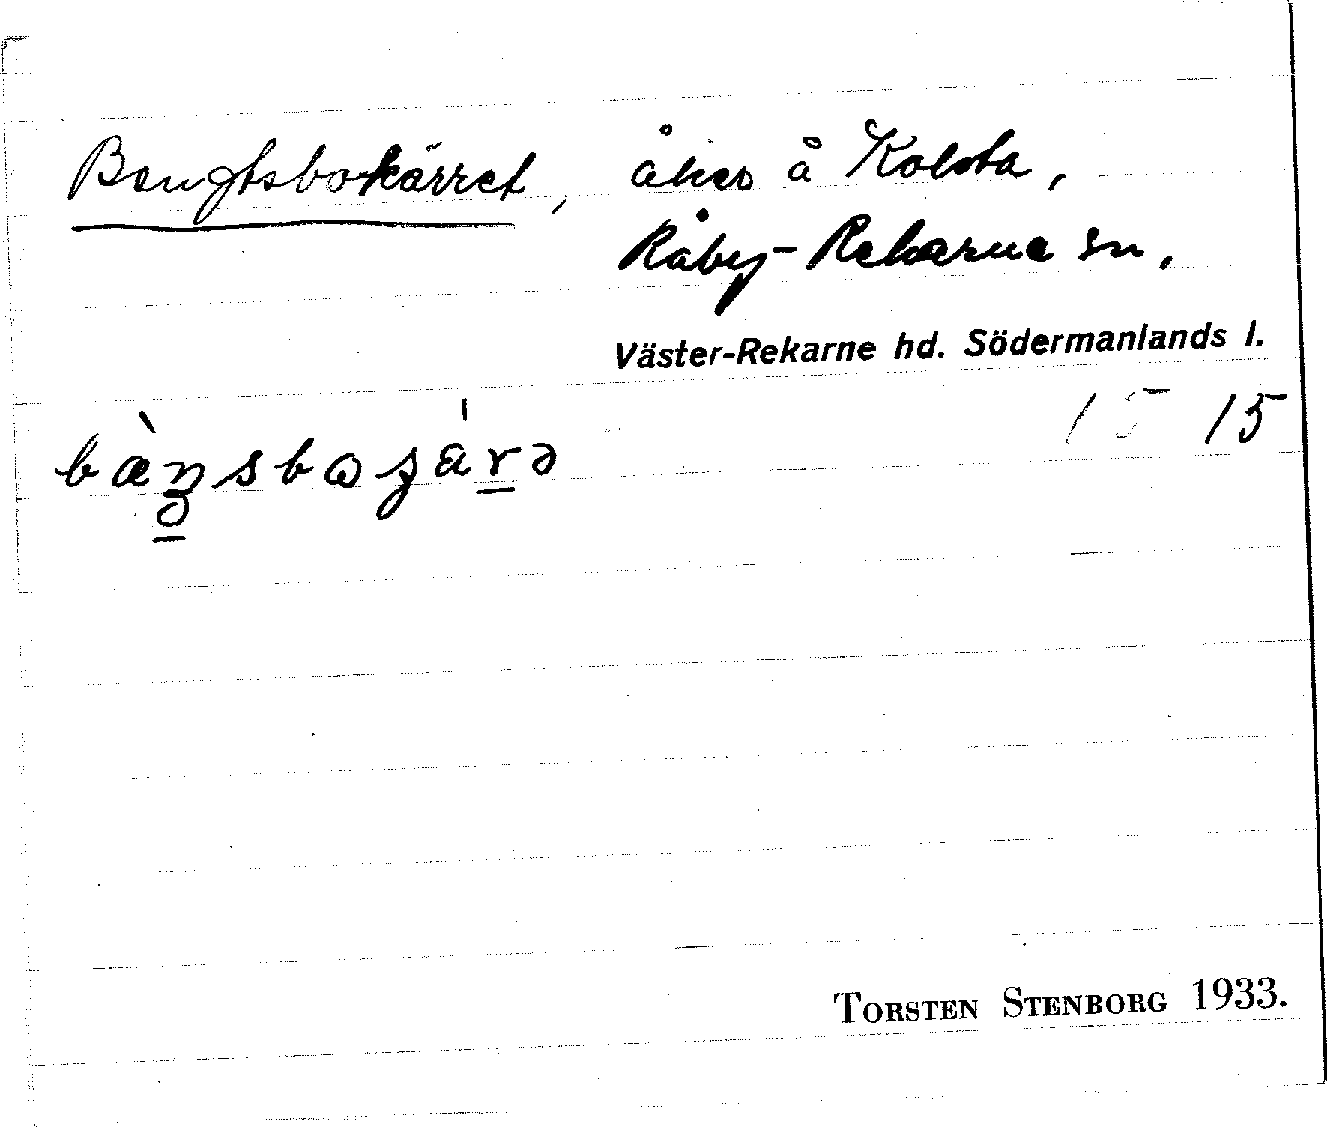 Bengtsbokärret, åker å Kolsta,
Råby-Rekarne sn,
Väster-Rekarne hd. Södermanlands l.
15 15
TORSTEN STENBORG 1933.